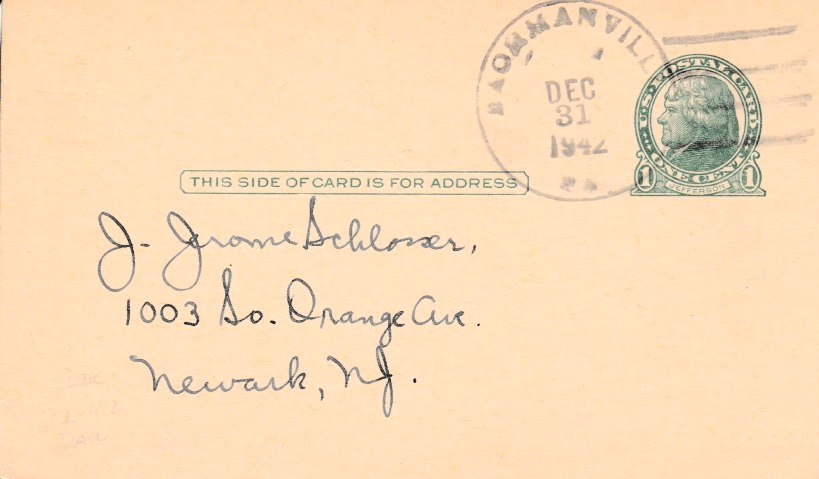 DEC
31
1942
PA
U.S. POSTAL CARD
ONE CENT
1 JEFFERSON 1
THIS SIDE OF CARD IS FOR ADDRESS
J. Jerome Schlosser,
1003 So. Orange Ave.
Newark, NJ.